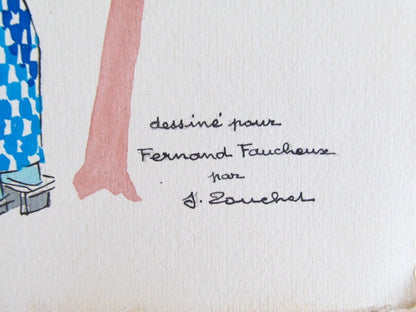 dessiné pour
Fernand Faucheux
par
J. Zouchet